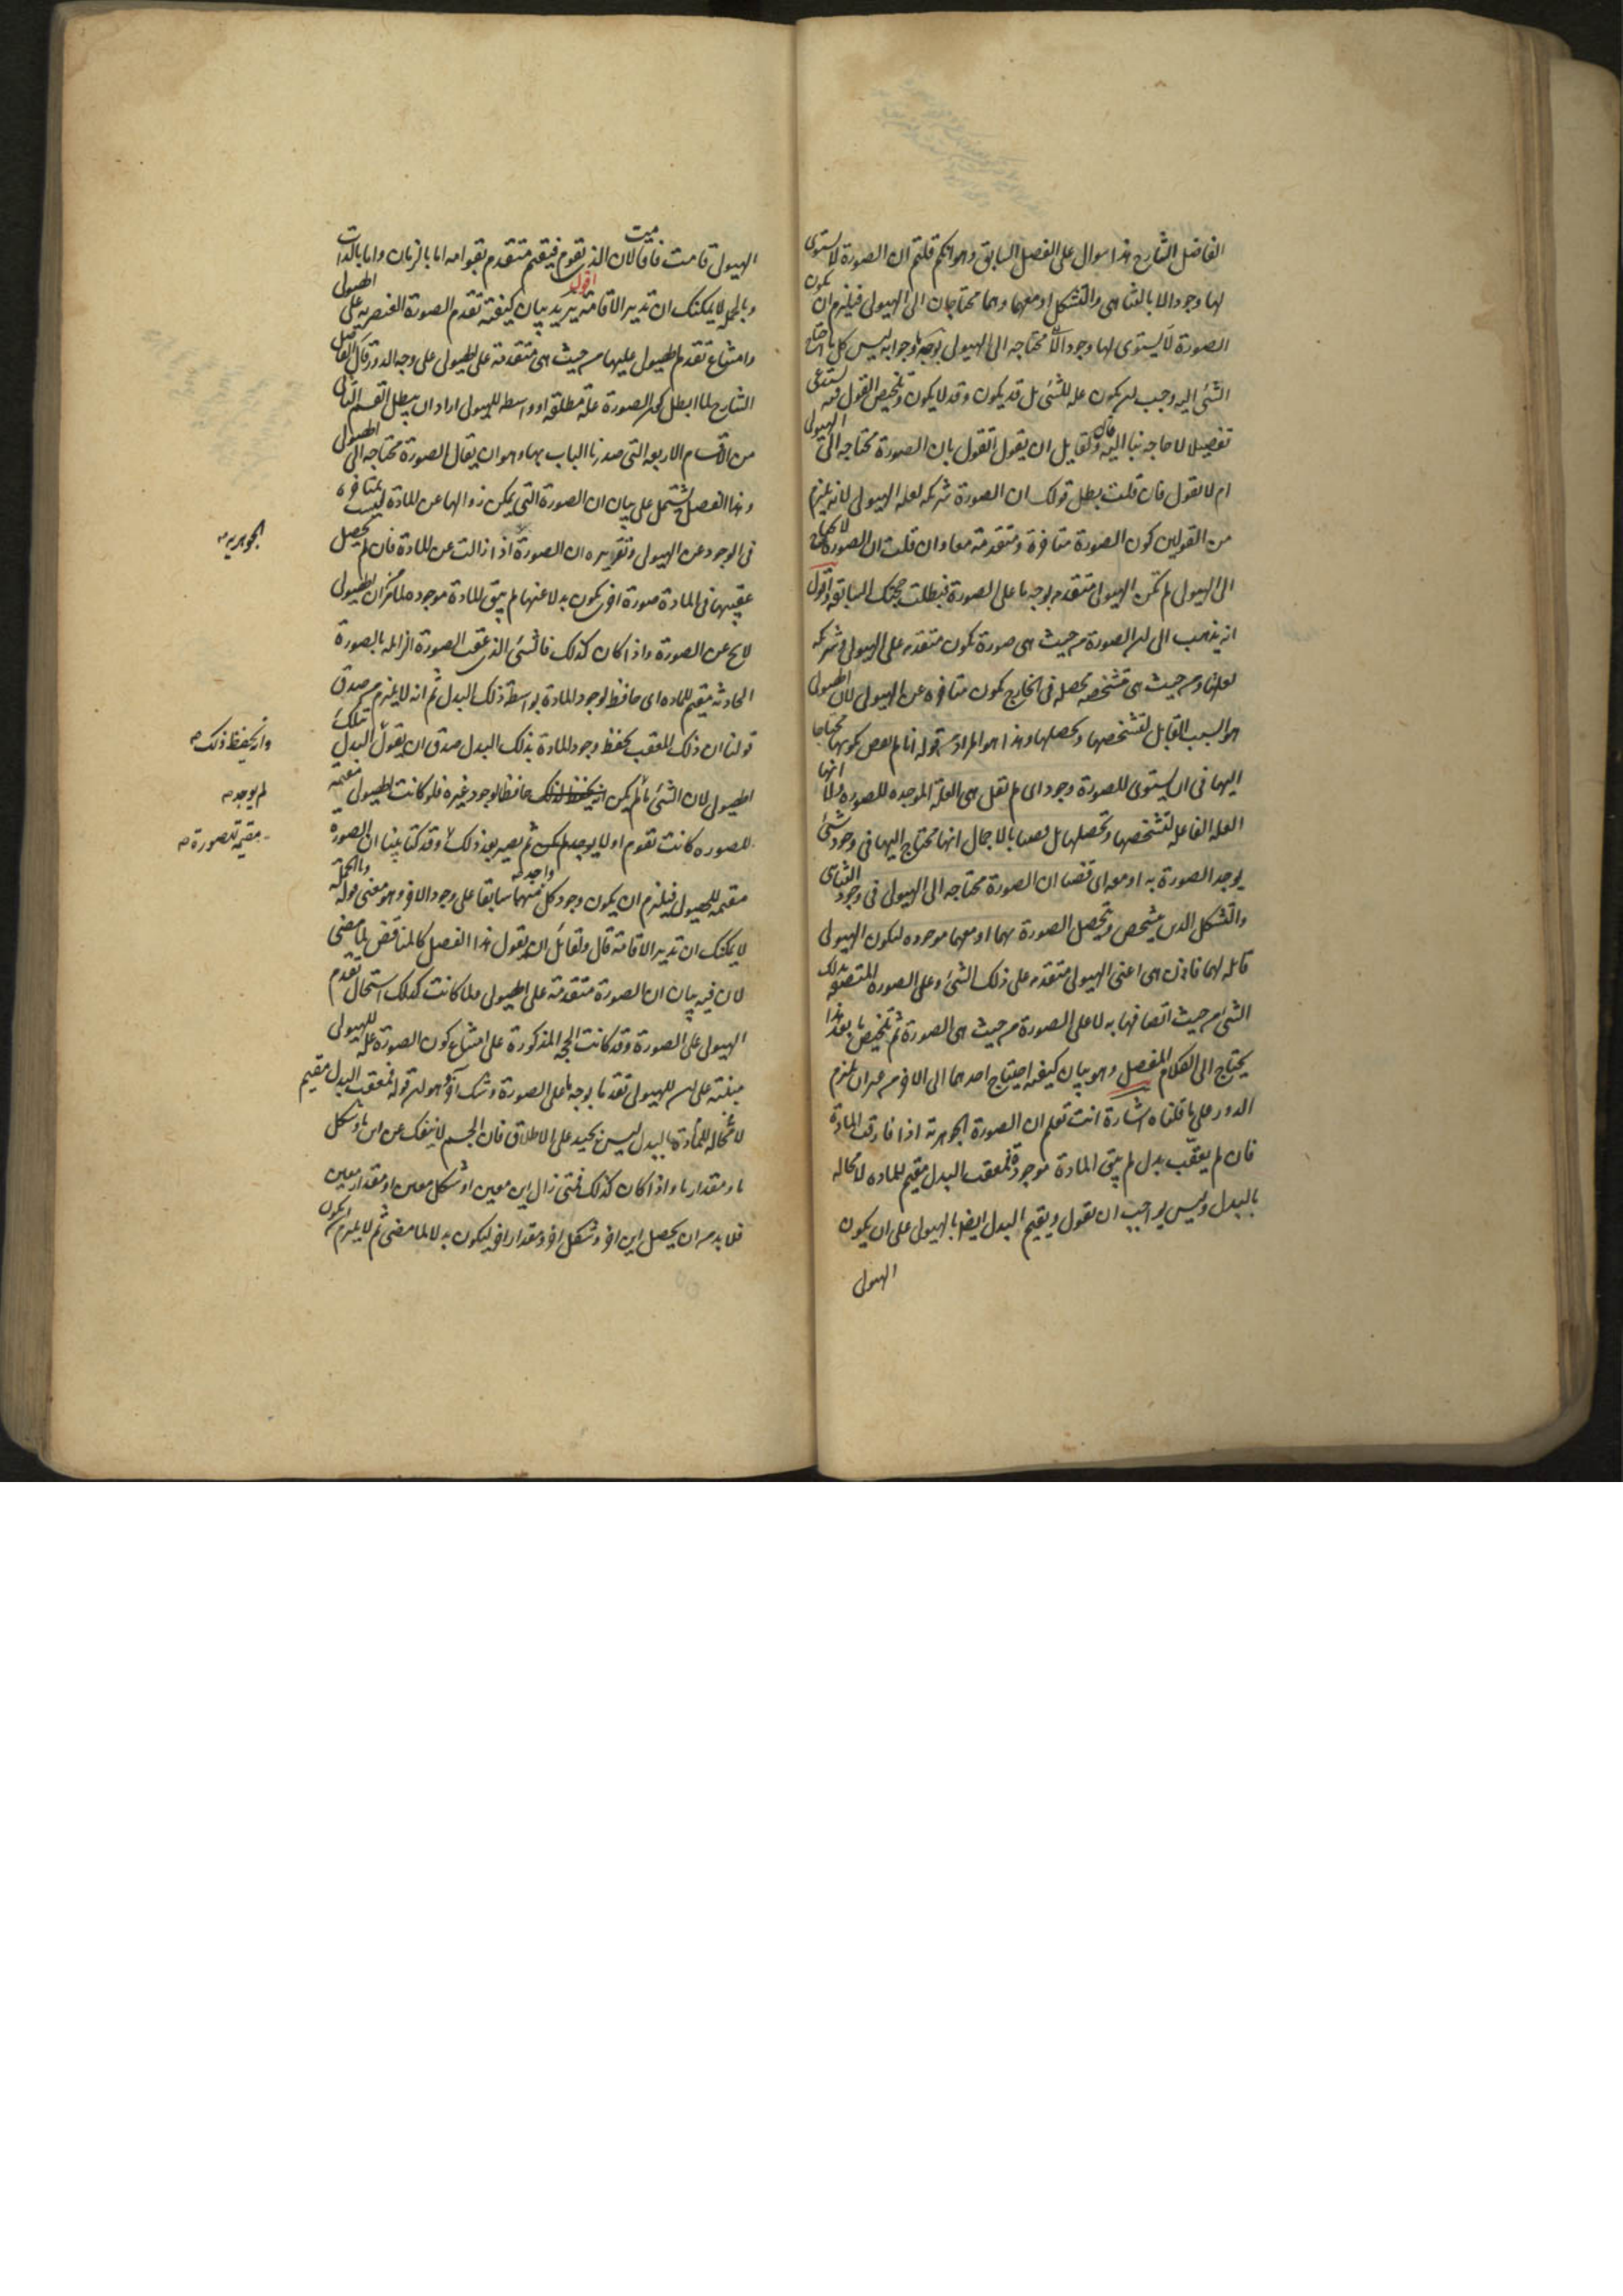 الفاضل الشارح هذا سؤال على الفصل السابق وهو انكم قلتم ان الصورة لا يستوى
لها وجود الا بالتناهى والتشكل او معهما وهما محتاجان الى الهيولى فيلزم ان يكون
الصورة لا يستوى لها وجود الا محتاجه الى الهيولى بوجه ما وجوابه ليس كل ما احتاج
الشئ اليه وجب ان يكون عله للشئ بل قد يكون وقد لا يكون وتلخيص القول فيه يستدعى
تفصيلا لا حاجه بنا اليه قال ولقايل ان يقول اتقول بان الصورة محتاجه الى الهيولى
ام لا تقول فان قلت بطل قولك ان الصورة شريكه لعله الهيولى لانه يلزم
من القولين كون الصورة متاخرة ومتقدمة معا وان قلت ان الصورة لا تحتاج
الى الهيولى لم تكن الهيولى متقدمه بوجه ما على الصورة فبطلت حجتك السابقه واقول
انه يذهب الى ان الصورة من حيث هى صورة تكون متقدمه على الهيولى وشريكه
لعلتها ومن حيث هى متشخصه محصله فى الخارج تكون متاخره عن الهيولى لان الهيولى
هو السبب القابل لتشخصها وتحصلها وهذا هو المراد من قوله انا لم نقض بكونها محتاجا
اليها فى ان يستوى للصورة وجود اى لم نقل هى العلة الموجده للصورة ولا انها
العله الفاعله لتشخصها وتحصلها بل قضينا بالاجمال انها محتاج اليها فى وجود شئ
يوجد الصورة به او معه اى قضينا ان الصورة محتاجه الى الهيولى فى وجود التناهى
والتشكل الذين يتشخص ويتحصل الصورة بهما او معهما موجوده لكون الهيولى
قابله لهما فاذن هى اعنى الهيولى متقدمه على ذلك الشئ وعلى الصورة المتصفه بذلك
الشئ من حيث اتصافها به لا على الصورة من حيث هى الصورة ثم تلخيص ما بعد هذا
يحتاج الى الكلام المفصل وهو بيان كيفية احتياج احدهما الى الاخر من غير ان يلزم
الدور على ما قلناه اشارة انت تعلم ان الصورة الجوهرية اذا فارقت المادة
فان لم يعقب بدل لم يبق المادة موجودة فمعقب البدل مقيم للمادة لا محاله
بالبدل وليس بواجب ان تقول ويقيم البدل ايضا بالهيولى على ان يكون
الهيولى
الهيولى قامت فاقامت لان الذى يقوم فيقيم متقدم بقوامه اما بالزمان واما بالذات
وبالجمله لا يمكنك ان تدير الاقامة اقول يريد بيان كيفية تقدم الصورة العنصريه على الهيولى
وامتناع تقدم الهيولى عليها من حيث هى متقدمة على الهيولى على وجه الدور قال الفاضل
الشارح لما ابطل كون الصورة علة مطلقة او واسطه للهيولى اراد ان يبطل القسم الثانى
من الاقسام الاربعه التى صدرنا الباب بها وهو ان يقال الصورة محتاجه الى الهيولى
وهذا الفصل يشتمل على بيان ان الصورة التى يمكن زوالها عن المادة ليست بمتاخرة
فى الوجود عن الهيولى وتقريره ان الصورة اذا زالت عن المادة فان لم يحصل
الجوهريه صح
عقيبها فى المادة صورة اخرى يكون بدلا عنها لم يبق المادة موجوده لما مر ان الهيولى
لا يخ عن الصورة واذا كان كذلك فالشئ الذى عقب الصورة الزائله بالصورة
الحادثه مقيم للماده اى حافظ لوجود المادة بواسطة ذلك البدل ثم انه لا يلزم من صدق
قولنا ان ذلك المعقب يحفظ وجود المادة بذلك البدل صدق ان يقول البدل بتلك
وانه يحفظ ذلك صح
الهيولى لان الشئ ما لم يكن حافظا لوجود غيره فلو كانت الهيولى مقيمة
لم يوجد صح
للصوره كانت تقوم اولا ثم يصير بعد ذلك وقد كنا بينا ان الصورة
مقيمة للصورة صح
مقيمه للهيولى فيلزم ان يكون وجود كل واحد منهما سابقا على وجود الاخر وهو معنى قوله وبالجملة
لا يمكنك ان تدير الاقامة قال ولقائل ان يقول هذا الفصل كالمناقض لما مضى
لان فيه بيان ان الصورة متقدمة على الهيولى ولما كانت كذلك استحال تقدم
الهيولى على الصورة وقد كانت الحجه المذكورة على امتناع كون الصورة عله للهيولى
مبنية على ان للهيولى تقدما بوجه ما على الصورة وشك آخر وهو ان قوله فمعقب البدل مقيم
لا محاله للمادة بالبدل ليس بجيد على الاطلاق فان الجسم لا ينفك عن اين ما وشكل
ما ومقدار ما واذا كان كذلك فمتى زال اين معين او شكل معين او مقدار معين
فلا بد من ان يحصل اين اخر وشكل اخر ومقدار اخر ليكون بدلا لما مضى ثم لا يلزم ان يكون